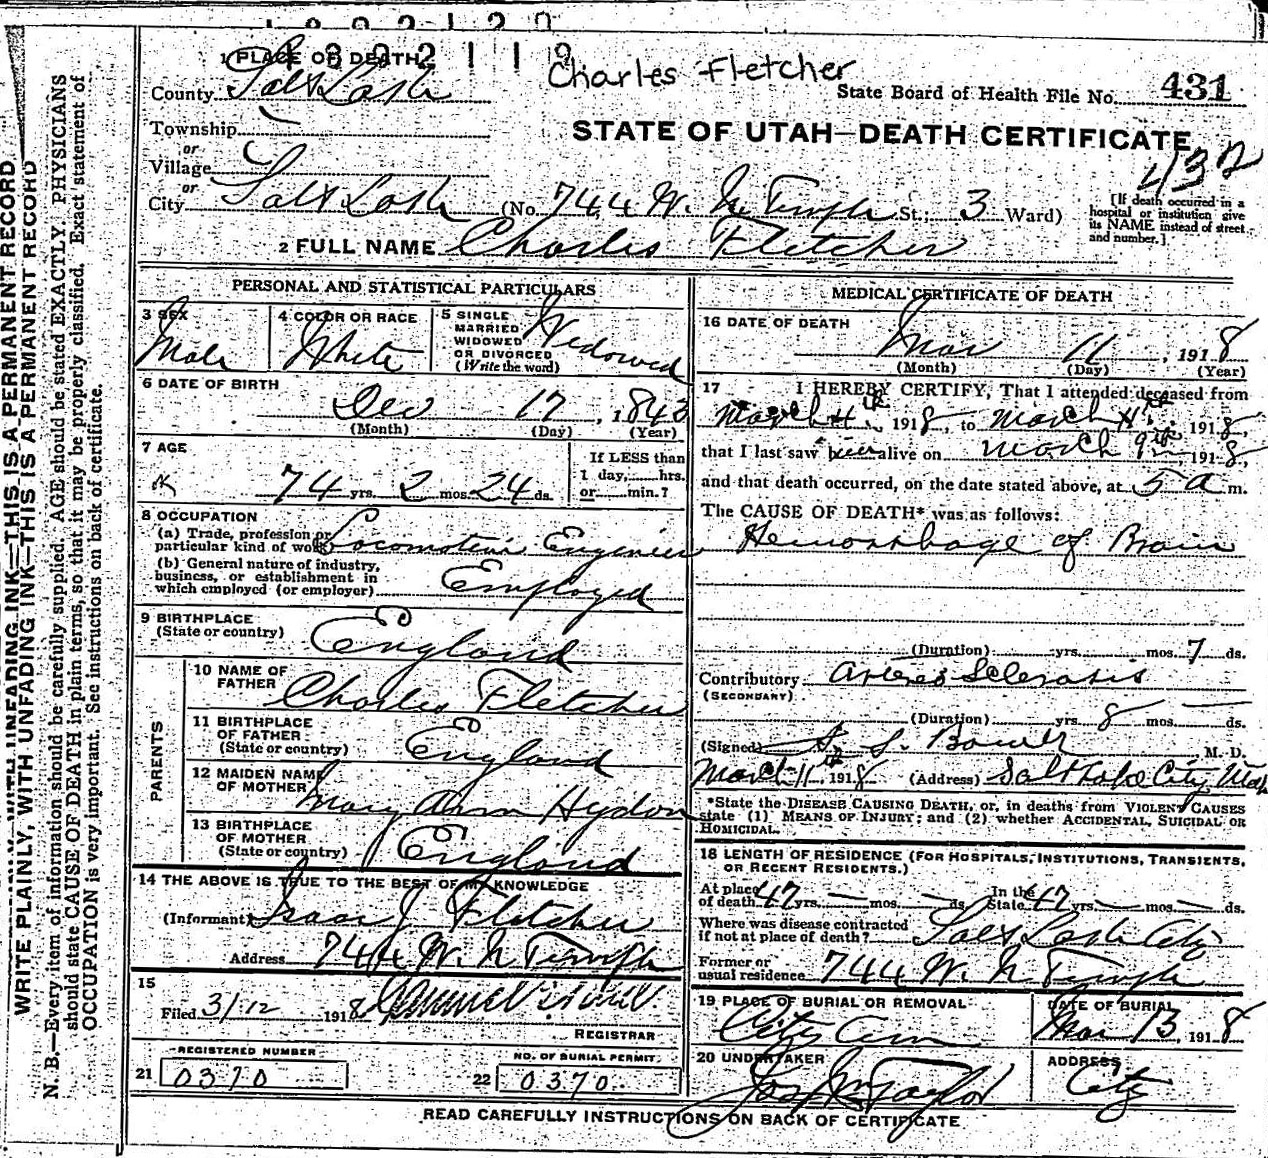 1892119
1 PLACE OF DEATH
Charles Fletcher
County Salt Lake
State Board of Health File No. 431
Township
or
STATE OF UTAH—DEATH CERTIFICATE
432
Village
or
City Salt Lake (No. 744 W. N Temple St.; 3 Ward)
[If death occurred in a
hospital or institution give
its NAME instead of street
and number.]
2 FULL NAME Charles Fletcher
PERSONAL AND STATISTICAL PARTICULARS
3 SEX
Male
4 COLOR OR RACE
White
5 SINGLE
MARRIED
WIDOWED
OR DIVORCED
(Write the word)
Widowed
6 DATE OF BIRTH
Dec 17, 1843
(Month) (Day) (Year)
7 AGE
74 yrs. 2 mos. 24 ds.
If LESS than
1 day, hrs.
or min.?
8 OCCUPATION
(a) Trade, profession or
particular kind of work Locomotive Engineer
(b) General nature of industry,
business, or establishment in
which employed (or employer) Employed
9 BIRTHPLACE
(State or country) England
PARENTS
10 NAME OF
FATHER Charles Fletcher
11 BIRTHPLACE
OF FATHER
(State or country) England
12 MAIDEN NAME
OF MOTHER Mary Ann Hydon
13 BIRTHPLACE
OF MOTHER
(State or country) England
14 THE ABOVE IS TRUE TO THE BEST OF MY KNOWLEDGE
(Informant) Isaac J Fletcher
Address 744 W. N Temple
15
Filed 3/12 1918
REGISTRAR
REGISTERED NUMBER
21 0370
NO. OF BURIAL PERMIT
22 0370
MEDICAL CERTIFICATE OF DEATH
16 DATE OF DEATH
Mar 11, 1918
(Month) (Day) (Year)
17 I HEREBY CERTIFY, That I attended deceased from
March 4th, 1918, to March 11th, 1918,
that I last saw alive on March 9th, 1918,
and that death occurred, on the date stated above, at 5 a m.
The CAUSE OF DEATH* was as follows:
Hemorrhage of Brain
(Duration) yrs. mos. 7 ds.
Contributory Arterio Sclerosis
(SECONDARY)
(Duration) yrs. 8 mos. — ds.
(Signed) M. D.
March 11th, 1918 (Address) Salt Lake City, Utah
*State the DISEASE CAUSING DEATH, or, in deaths from VIOLENT CAUSES
state (1) MEANS OF INJURY; and (2) whether ACCIDENTAL, SUICIDAL OR
HOMICIDAL.
18 LENGTH OF RESIDENCE (FOR HOSPITALS, INSTITUTIONS, TRANSIENTS,
OR RECENT RESIDENTS.)
At place
of death 47 yrs. — mos. — ds.
In the
State 47 yrs. — mos. — ds.
Where was disease contracted
if not at place of death? Salt Lake City
Former or
usual residence 744 W. N Temple
19 PLACE OF BURIAL OR REMOVAL
City Cem
DATE OF BURIAL
Mar 13, 1918
20 UNDERTAKER
Jos Wm Taylor
ADDRESS
City
READ CAREFULLY INSTRUCTIONS ON BACK OF CERTIFICATE
WRITE PLAINLY, WITH UNFADING INK—THIS IS A PERMANENT RECORD
N. B.—Every item of information should be carefully supplied. AGE should be stated EXACTLY. PHYSICIANS
should state CAUSE OF DEATH in plain terms, so that it may be properly classified. Exact statement of
OCCUPATION is very important. See instructions on back of certificate.